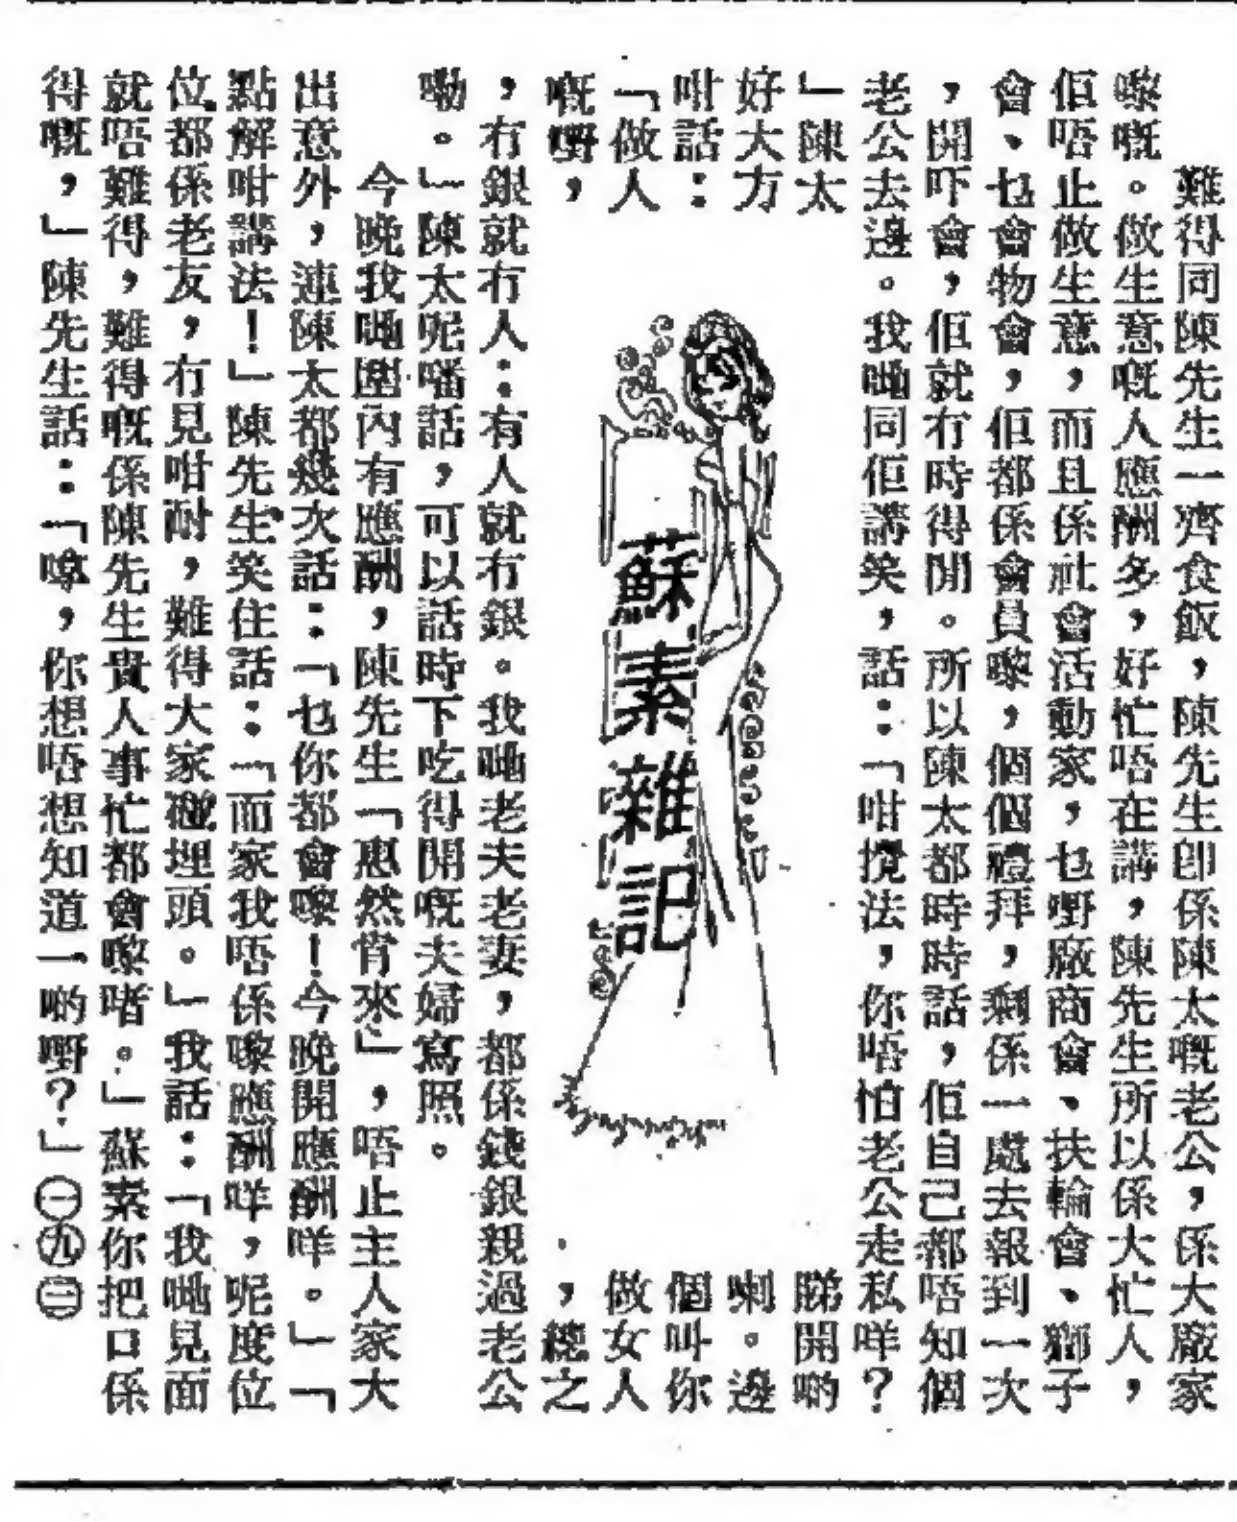 難得同陳先生一齊食飯，陳先生卽係陳太嘅老公，係大廠家
嚟嘅。做生意嘅人應酬多，好忙唔在講，陳先生所以係大忙人，
佢唔止做生意，而且係社會活動家，乜嘢廠商會、扶輪會、獅子
會、乜會物會，佢都係會員嚟，個個禮拜，剩係一處去報到一次
，開吓會，佢就冇時得閒。所以陳太都時時話，佢自己都唔知個
老公去邊。我哋同佢講笑，話：「咁攪法，你唔怕老公走私咩？
」陳太
好大方
咁話：
「做人
嘅嘢，
蘇素雜記
睇開啲
喇。邊
個叫你
做女人
，總之
，冇銀就冇人：有人就冇銀。我哋老夫老妻，都係錢銀親過老公
嘞。」陳太呢噃話，可以話時下吃得開嘅夫婦寫照。
今晚我哋圈內有應酬，陳先生「惠然肯來」，唔止主人家大
出意外，連陳太都幾次話：「乜你都會嚟！今晚開應酬咩。」「
點解咁講法！」陳先生笑住話：「而家我唔係嚟應酬咩，呢度位
位都係老友，冇見咁耐，難得大家碰埋頭。」我話：「我哋見面
就唔難得，難得嘅係陳先生貴人事忙都會嚟啫。」蘇素你把口係
得嘅，」陳先生話：「嗱，你想唔想知道一啲嘢？」㊀㊈㊂